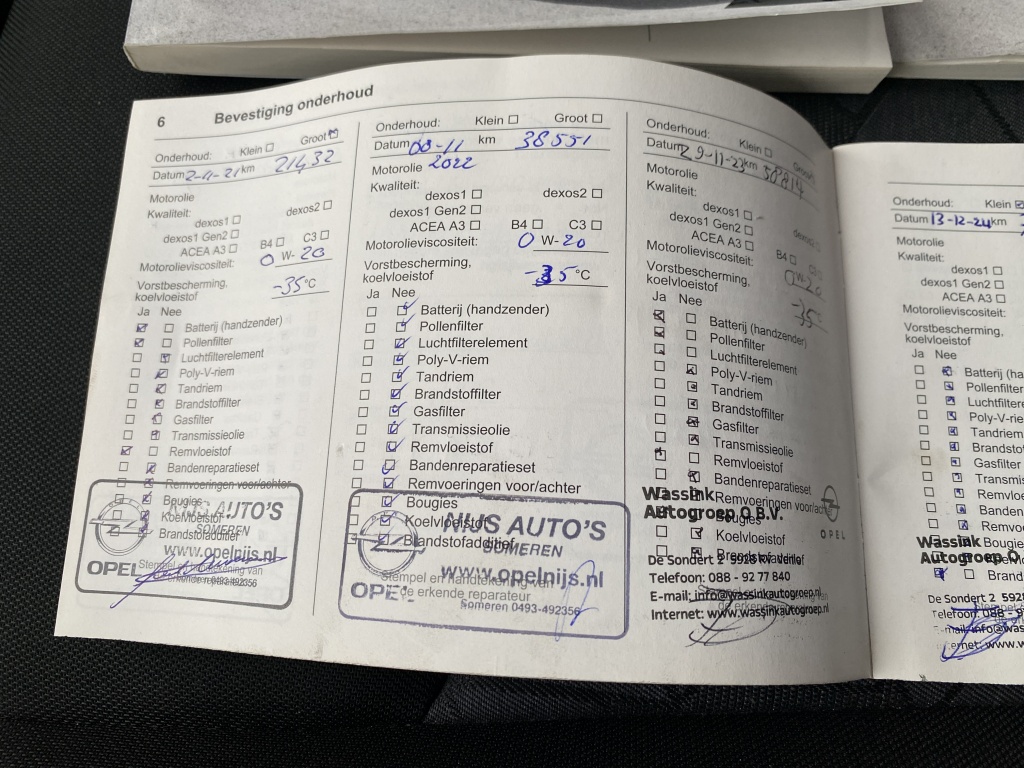 6 Bevestiging onderhoud
Onderhoud: Klein ☐ Groot ☑
Datum 2-11-21 km 21432
Motorolie
Kwaliteit:
dexos1 ☐ dexos2 ☐
dexos1 Gen2 ☐
ACEA A3 ☐ B4 ☐ C3 ☐
Motorolieviscositeit: 0 W- 20
Vorstbescherming,
koelvloeistof -35 °C
Ja Nee
☑ ☐ Batterij (handzender)
☑ ☐ Pollenfilter
☐ ☑ Luchtfilterelement
☐ ☑ Poly-V-riem
☐ ☑ Tandriem
☐ ☑ Brandstoffilter
☐ ☑ Gasfilter
☐ ☑ Transmissieolie
☑ ☐ Remvloeistof
☐ ☑ Bandenreparatieset
☐ ☑ Remvoeringen voor/achter
☐ ☑ Bougies
☐ ☑ Koelvloeistof
☐ ☑ Brandstofadditief
NIJS AUTO'S
SOMEREN
www.opelnijs.nl
OPEL
Stempel en handtekening van
erkende reparateur
0493-492356
Onderhoud: Klein ☐ Groot ☐
Datum 08-11 km 38551
2022
Motorolie
Kwaliteit:
dexos1 ☐ dexos2 ☐
dexos1 Gen2 ☐
ACEA A3 ☐ B4 ☐ C3 ☐
Motorolieviscositeit: 0 W- 20
Vorstbescherming,
koelvloeistof -35 °C
Ja Nee
☐ ☑ Batterij (handzender)
☐ ☑ Pollenfilter
☐ ☑ Luchtfilterelement
☐ ☑ Poly-V-riem
☐ ☑ Tandriem
☐ ☑ Brandstoffilter
☐ ☑ Gasfilter
☐ ☑ Transmissieolie
☐ ☑ Remvloeistof
☐ ☑ Bandenreparatieset
☐ ☑ Remvoeringen voor/achter
☐ ☑ Bougies
☐ ☑ Koelvloeistof
☐ ☑ Brandstofadditief
NIJS AUTO'S
SOMEREN
www.opelnijs.nl
OPEL
Stempel en handtekening van
de erkende reparateur
Someren 0493-492356
Onderhoud: Klein ☐ Groot
Datum 29-11-23 km 58814
Motorolie
Kwaliteit:
dexos1 ☐ dexos2 ☐
dexos1 Gen2 ☐
ACEA A3 ☐ B4 ☐ C3
Motorolieviscositeit: 0 W-20
Vorstbescherming,
koelvloeistof -35 °C
Ja Nee
Batterij (handzender)
Pollenfilter
Luchtfilterelement
Poly-V-riem
Tandriem
Brandstoffilter
Gasfilter
Transmissieolie
Remvloeistof
Bandenreparatieset
Remvoeringen voor/ach
Bougies
Koelvloeistof
Brandstofadditief
OPEL
Wassink
Autogroep O B.V.
De Sondert 2 5928 RV Venlo
Telefoon: 088 - 92 77 840
E-mail: info@wassinkautogroep.nl
Internet: www.wassinkautogroep.nl
Onderhoud: Klein ☑
Datum 13-12-24 km
Motorolie
Kwaliteit:
dexos1 ☐
dexos1 Gen2 ☐
ACEA A3 ☐
Motorolieviscositeit:
Vorstbescherming,
koelvloeistof
Ja Nee
☐ ☑ Batterij (ha
☐ ☑ Pollenfilter
☐ ☑ Luchtfiltere
☐ ☑ Poly-V-rie
☐ ☑ Tandriem
☐ ☑ Brandsto
☐ ☑ Gasfilter
☐ ☑ Transmis
☐ ☑ Remvloe
☐ ☑ Banden
☐ ☑ Remvo
Brand
Wassink
Autogroep O.
De Sondert 2 5928
Telefoon: 088 - 9
mail: info@wa
ernet: www.w